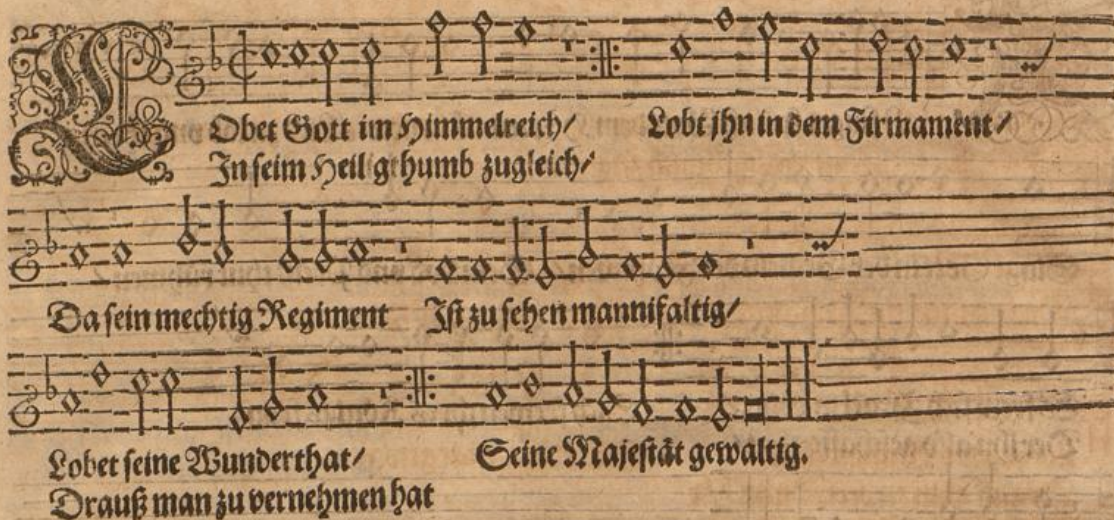 LObet Gott im Himmelreich/ Lobt jhn in dem Firmament/
In seim Heiligthumb zugleich/
Da sein mechtig Regiment Ist zu sehen mannifaltig/
Lobet seine Wunderthat/ Seine Majestät gewaltig.
Drauß man zu vernehmen hat